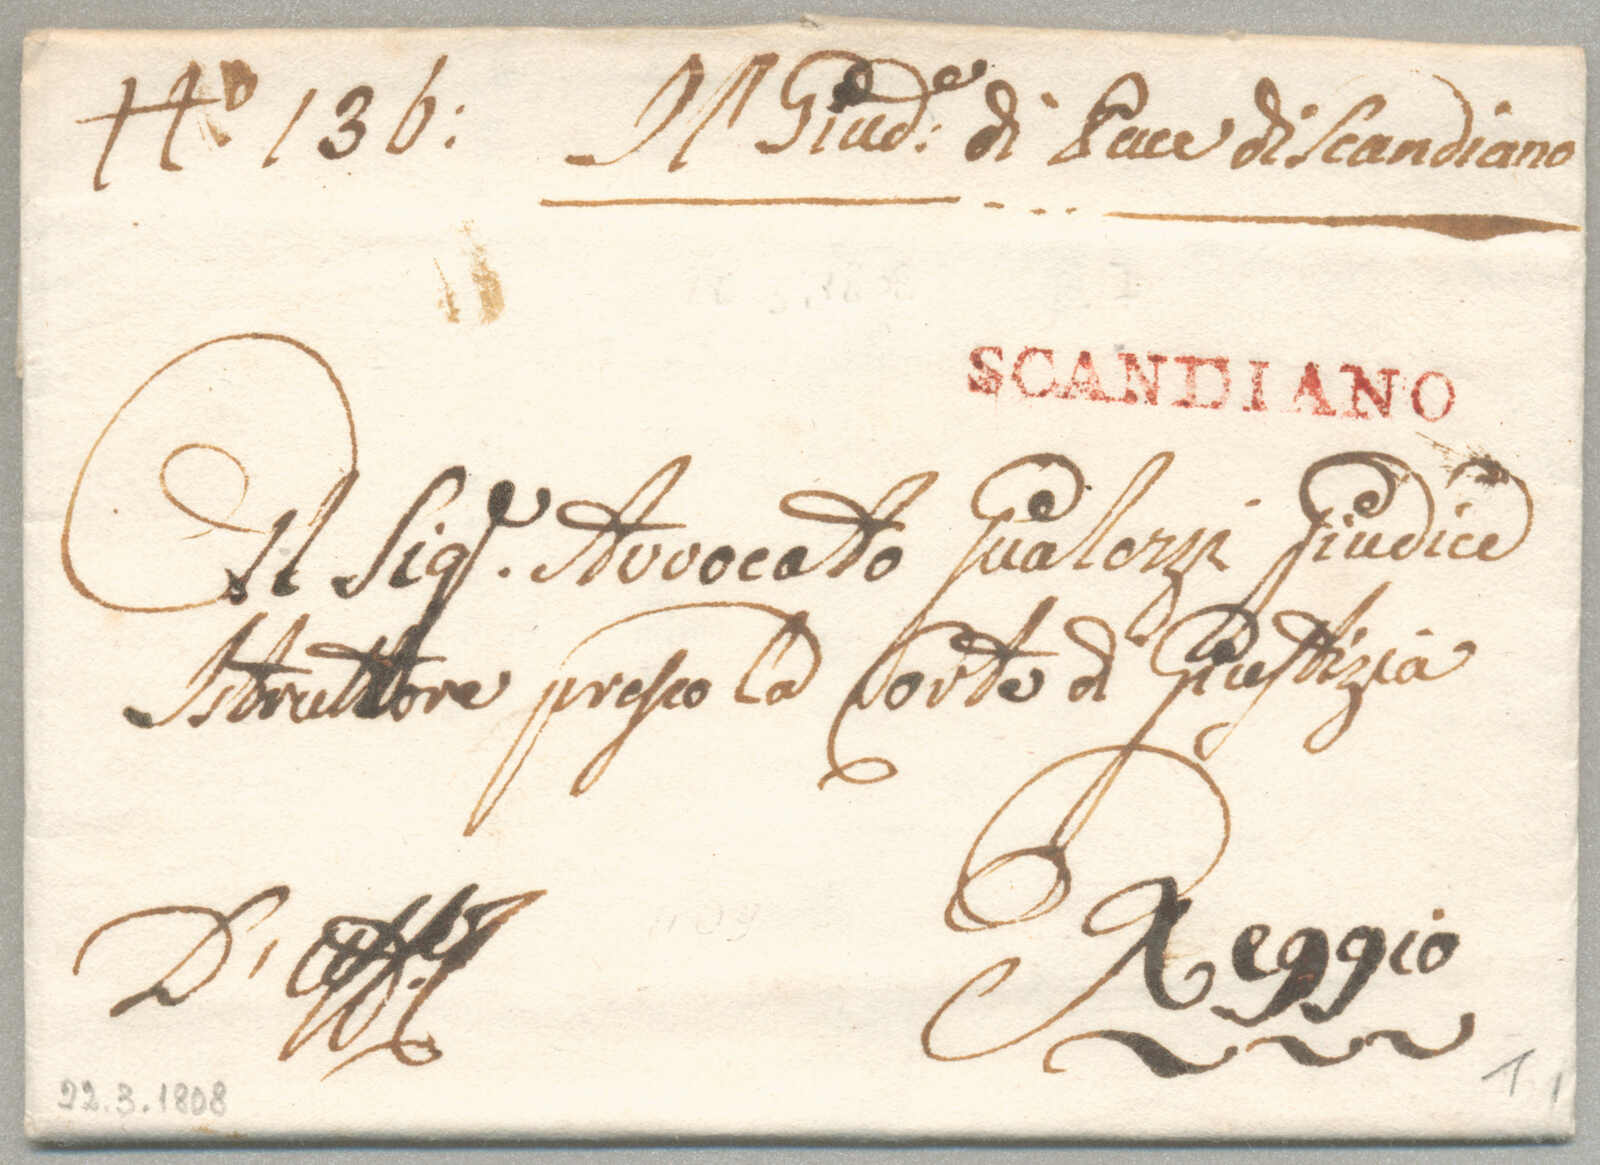 N.o 136: Il Giud.e di Pace di Scandiano
SCANDIANO
Il Sig.r Avvocato Gualerzi Giudice
Istruttore presso la Corte di Giustizia
D'
Reggio
22.3.1808